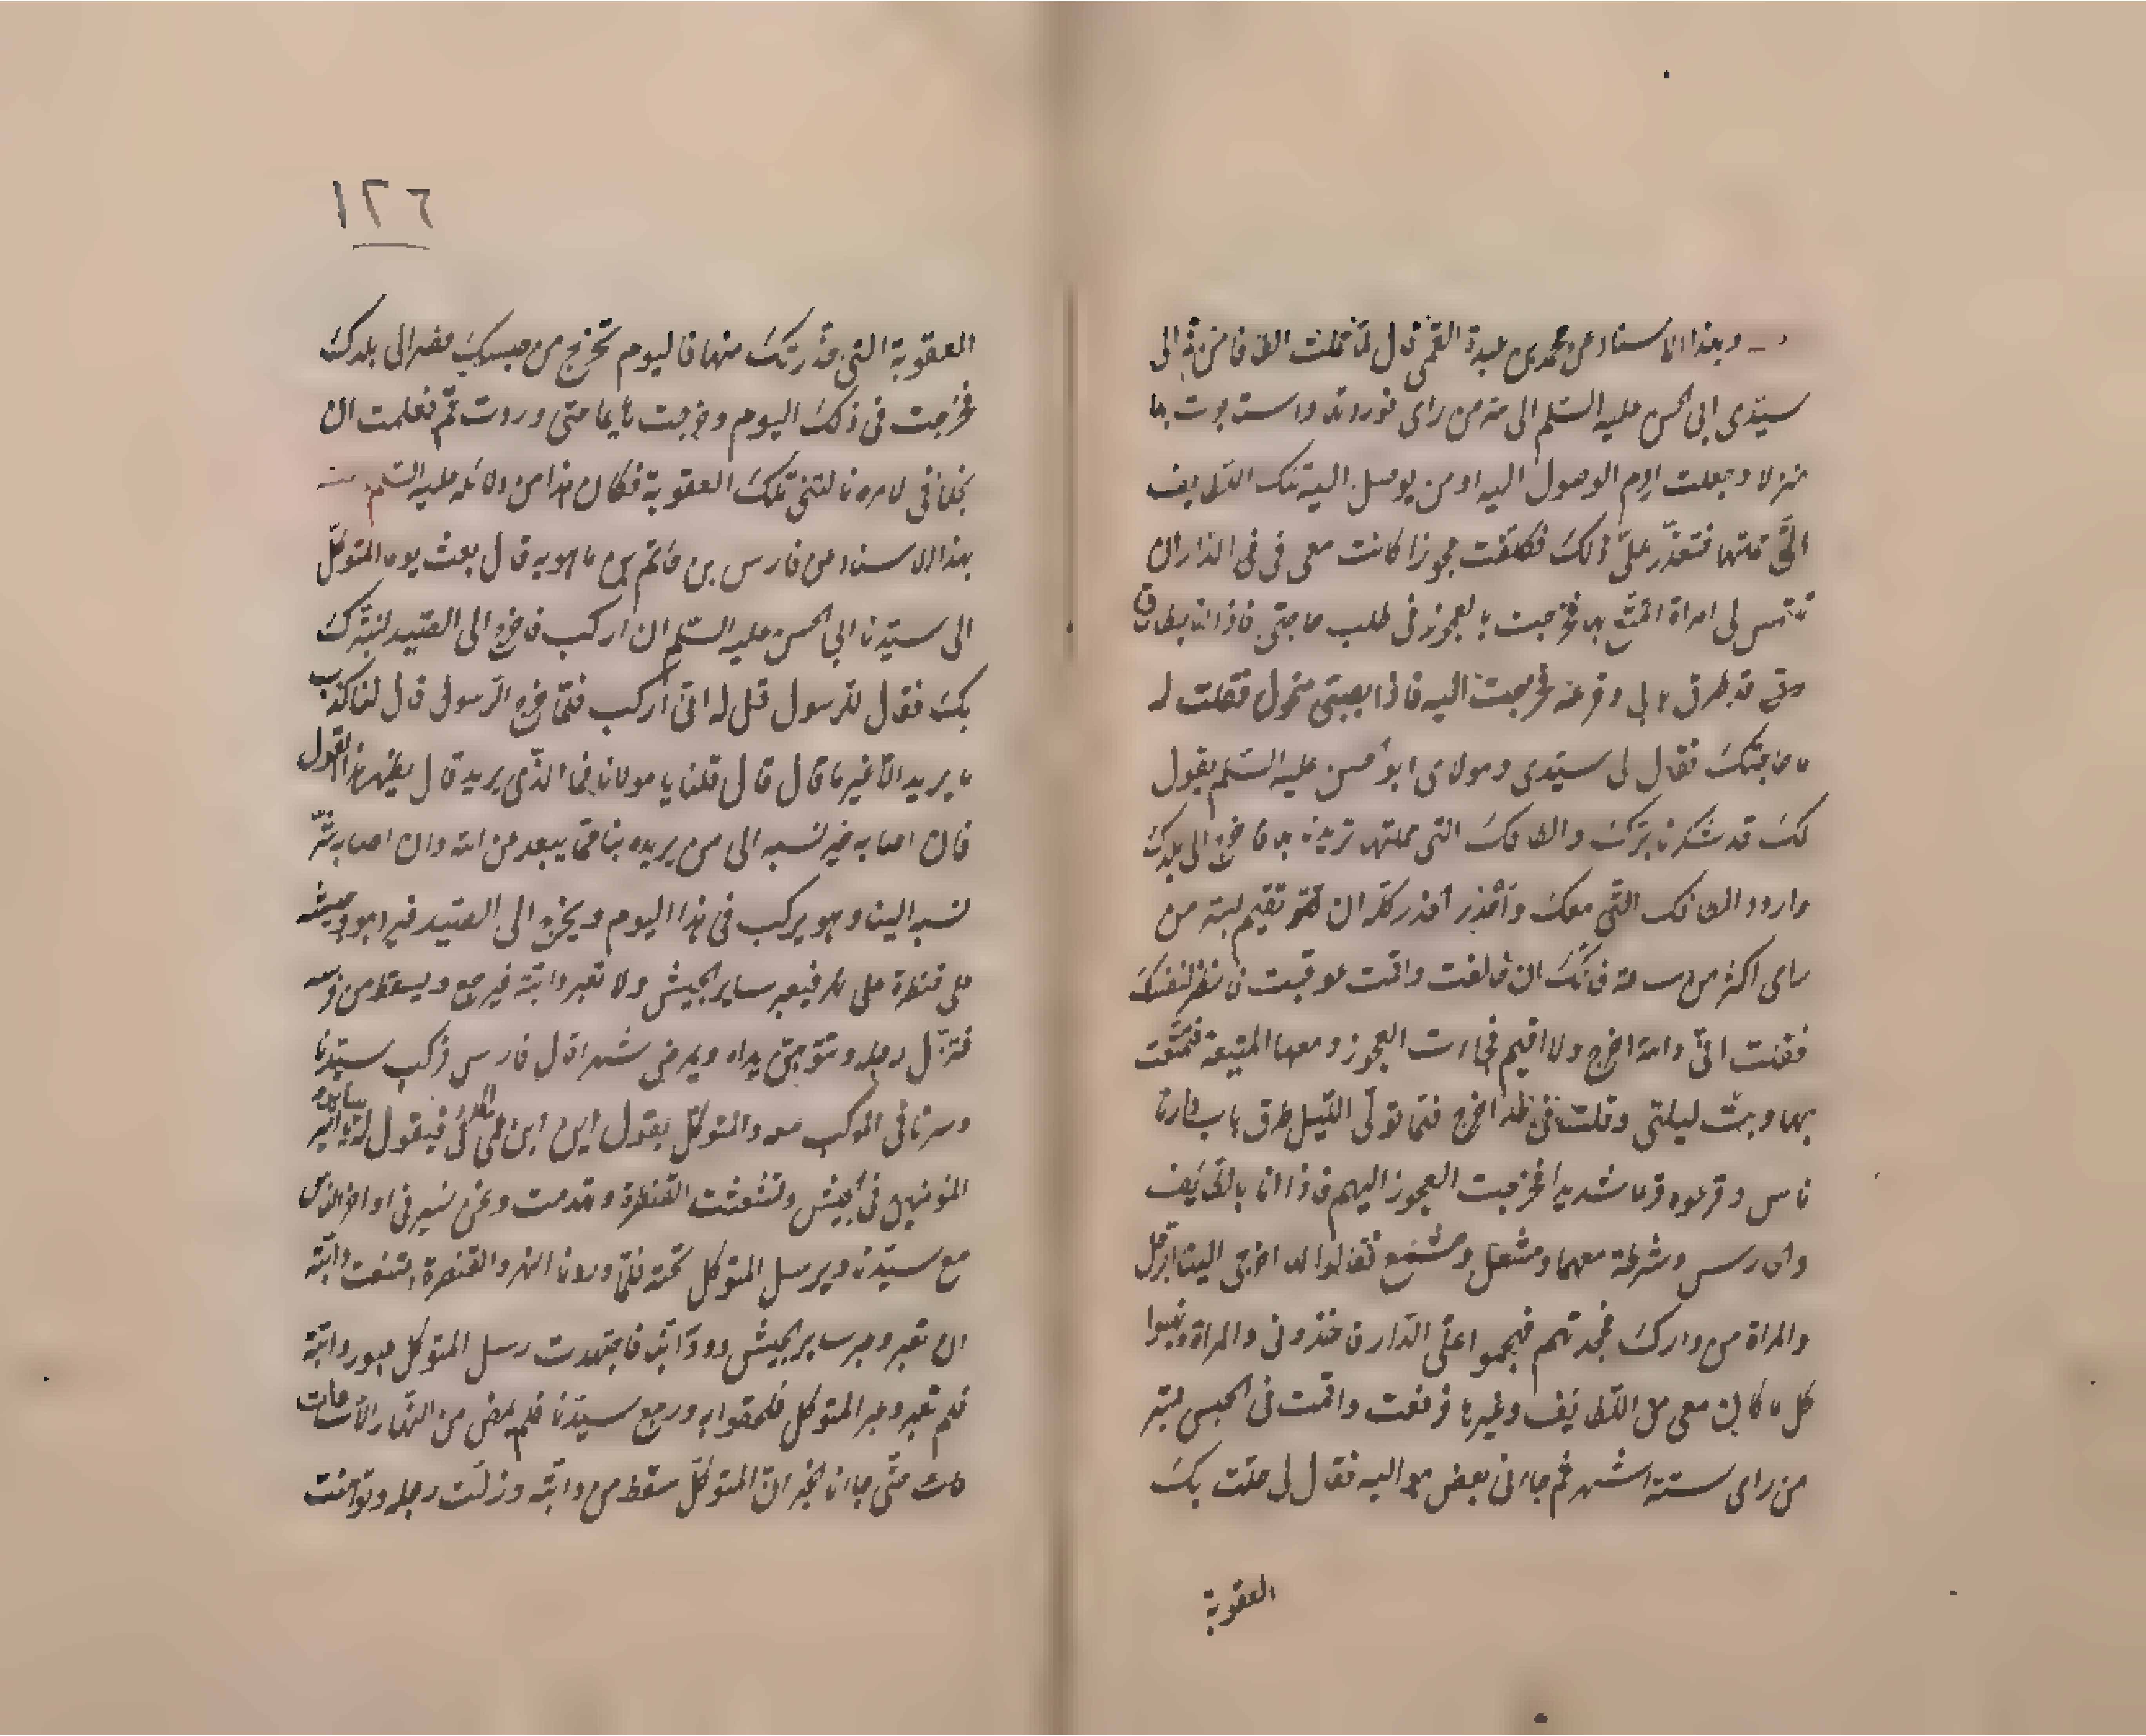 وبهذا الاسناد عن محمد بن عبدة القمي قال لما حملت الطافا من قم الى
سيدى ابى الحسن عليه السلم الى سر من راى فوردتها واستاجرت بها
منزلا وجعلت اروم الوصول اليه او من يوصل اليه تلك اللطايف
التى حملتها فتعذر على ذلك فكلفت عجوزا كانت معى فى الدار ان
تلتمس لى امراة اتمتع بها فخرجت العجوز فى طلب حاجتى فاذا انا بطارق
قد طرق بابى وقرعه فخرجت اليه فاذا بصبى منحول فقلت له
ما حاجتك فقال لى سيدى ومولاى ابو الحسن عليه السلم يقول
لك قد شكرنا برك والطافك التى حملتها تريدنا بها فاخرج الى بلدك
واردد الطافك التى معك واحذر الحذر كله ان تقيم بسر من
راى اكثر من ساعة فانك ان خالفت واقمت عوقبت فانظر لنفسك
فقلت انى والله اخرج ولا اقيم فجاءت العجوز ومعها المتيعة فتمتعت
بها وبت ليلتى وقلت فى غد اخرج فلما تولى الليل طرق باب دارنا
ناس وقرعوه قرعا شديدا فخرجت العجوز اليهم فاذا انا بالطايف
والحارس وشرطة معهما ومشعل وشمع فقالوا لها اخرجى الينا الرجل
والمراة من دارك فجحدتهم فهجموا على الدار فاخذونى والمراة ونهبوا
كل ما كان معى من اللطايف وغيرها فرفعت واقمت فى الحبس بسر
من راى ستة اشهر ثم جاءنى بعض مواليه فقال لى حلت بك
العقوبة
١٢٦
العقوبة التى حذرتك منها فاليوم تخرج من حبسك فصر الى بلدك
فخرجت فى ذلك اليوم وخرجت هايما حتى وردت قم فعلمت ان
بخلافى لامره نالتنى تلك العقوبة فكان هذا من دلائله عليه السلم
بهذا الاسناد عن فارس بن حاتم بن ماهويه قال بعث يوما المتوكل
الى سيدنا ابى الحسن عليه السلم ان اركب فاخرج الى الصيد لنتبرك
بك فقال للرسول قل له انى اركب فلما خرج الرسول قال لنا كذب
ما يريد الا غير ما قال قال قلنا يا مولانا فما الذى يريد قال يظهر هذا القول
فان اصابه خير نسبه الى من يريده بنا فيما يبعد من الله وان اصابه شر
نسبه الينا وهو يركب فى هذا اليوم ويخرج الى الصيد فيرد هو وجيشه
على قنطرة على نهر فيعبر ساير الجيش ولا تعبر دابته فيرجع ويسقط من فرسه
فتزل رجله وتتوهن يداه ويمرض شهرا قال فارس فركب سيدنا
وسرنا فى الموكب معه والمتوكل يقول اين ابن عمى المدنى فيقول له ساير يا امير
المؤمنين فى الجيش وتشعثت القنطرة وتهدمت ونحن نسير فى اواخر الناس
مع سيدنا ويرسل المتوكل تحته فلما وردنا النهر والقنطرة امتنعت دابته
ان تعبر وعبر ساير الجيش ودوابنا فاجتهدت رسل المتوكل عبور دابته
فلم تعبر وعبر المتوكل فلحقوا به ورجع سيدنا فلم يمض من النهار الا ساعات
حتى جاءنا الخبر ان المتوكل سقط من دابته وزلت رجله وتوهنت